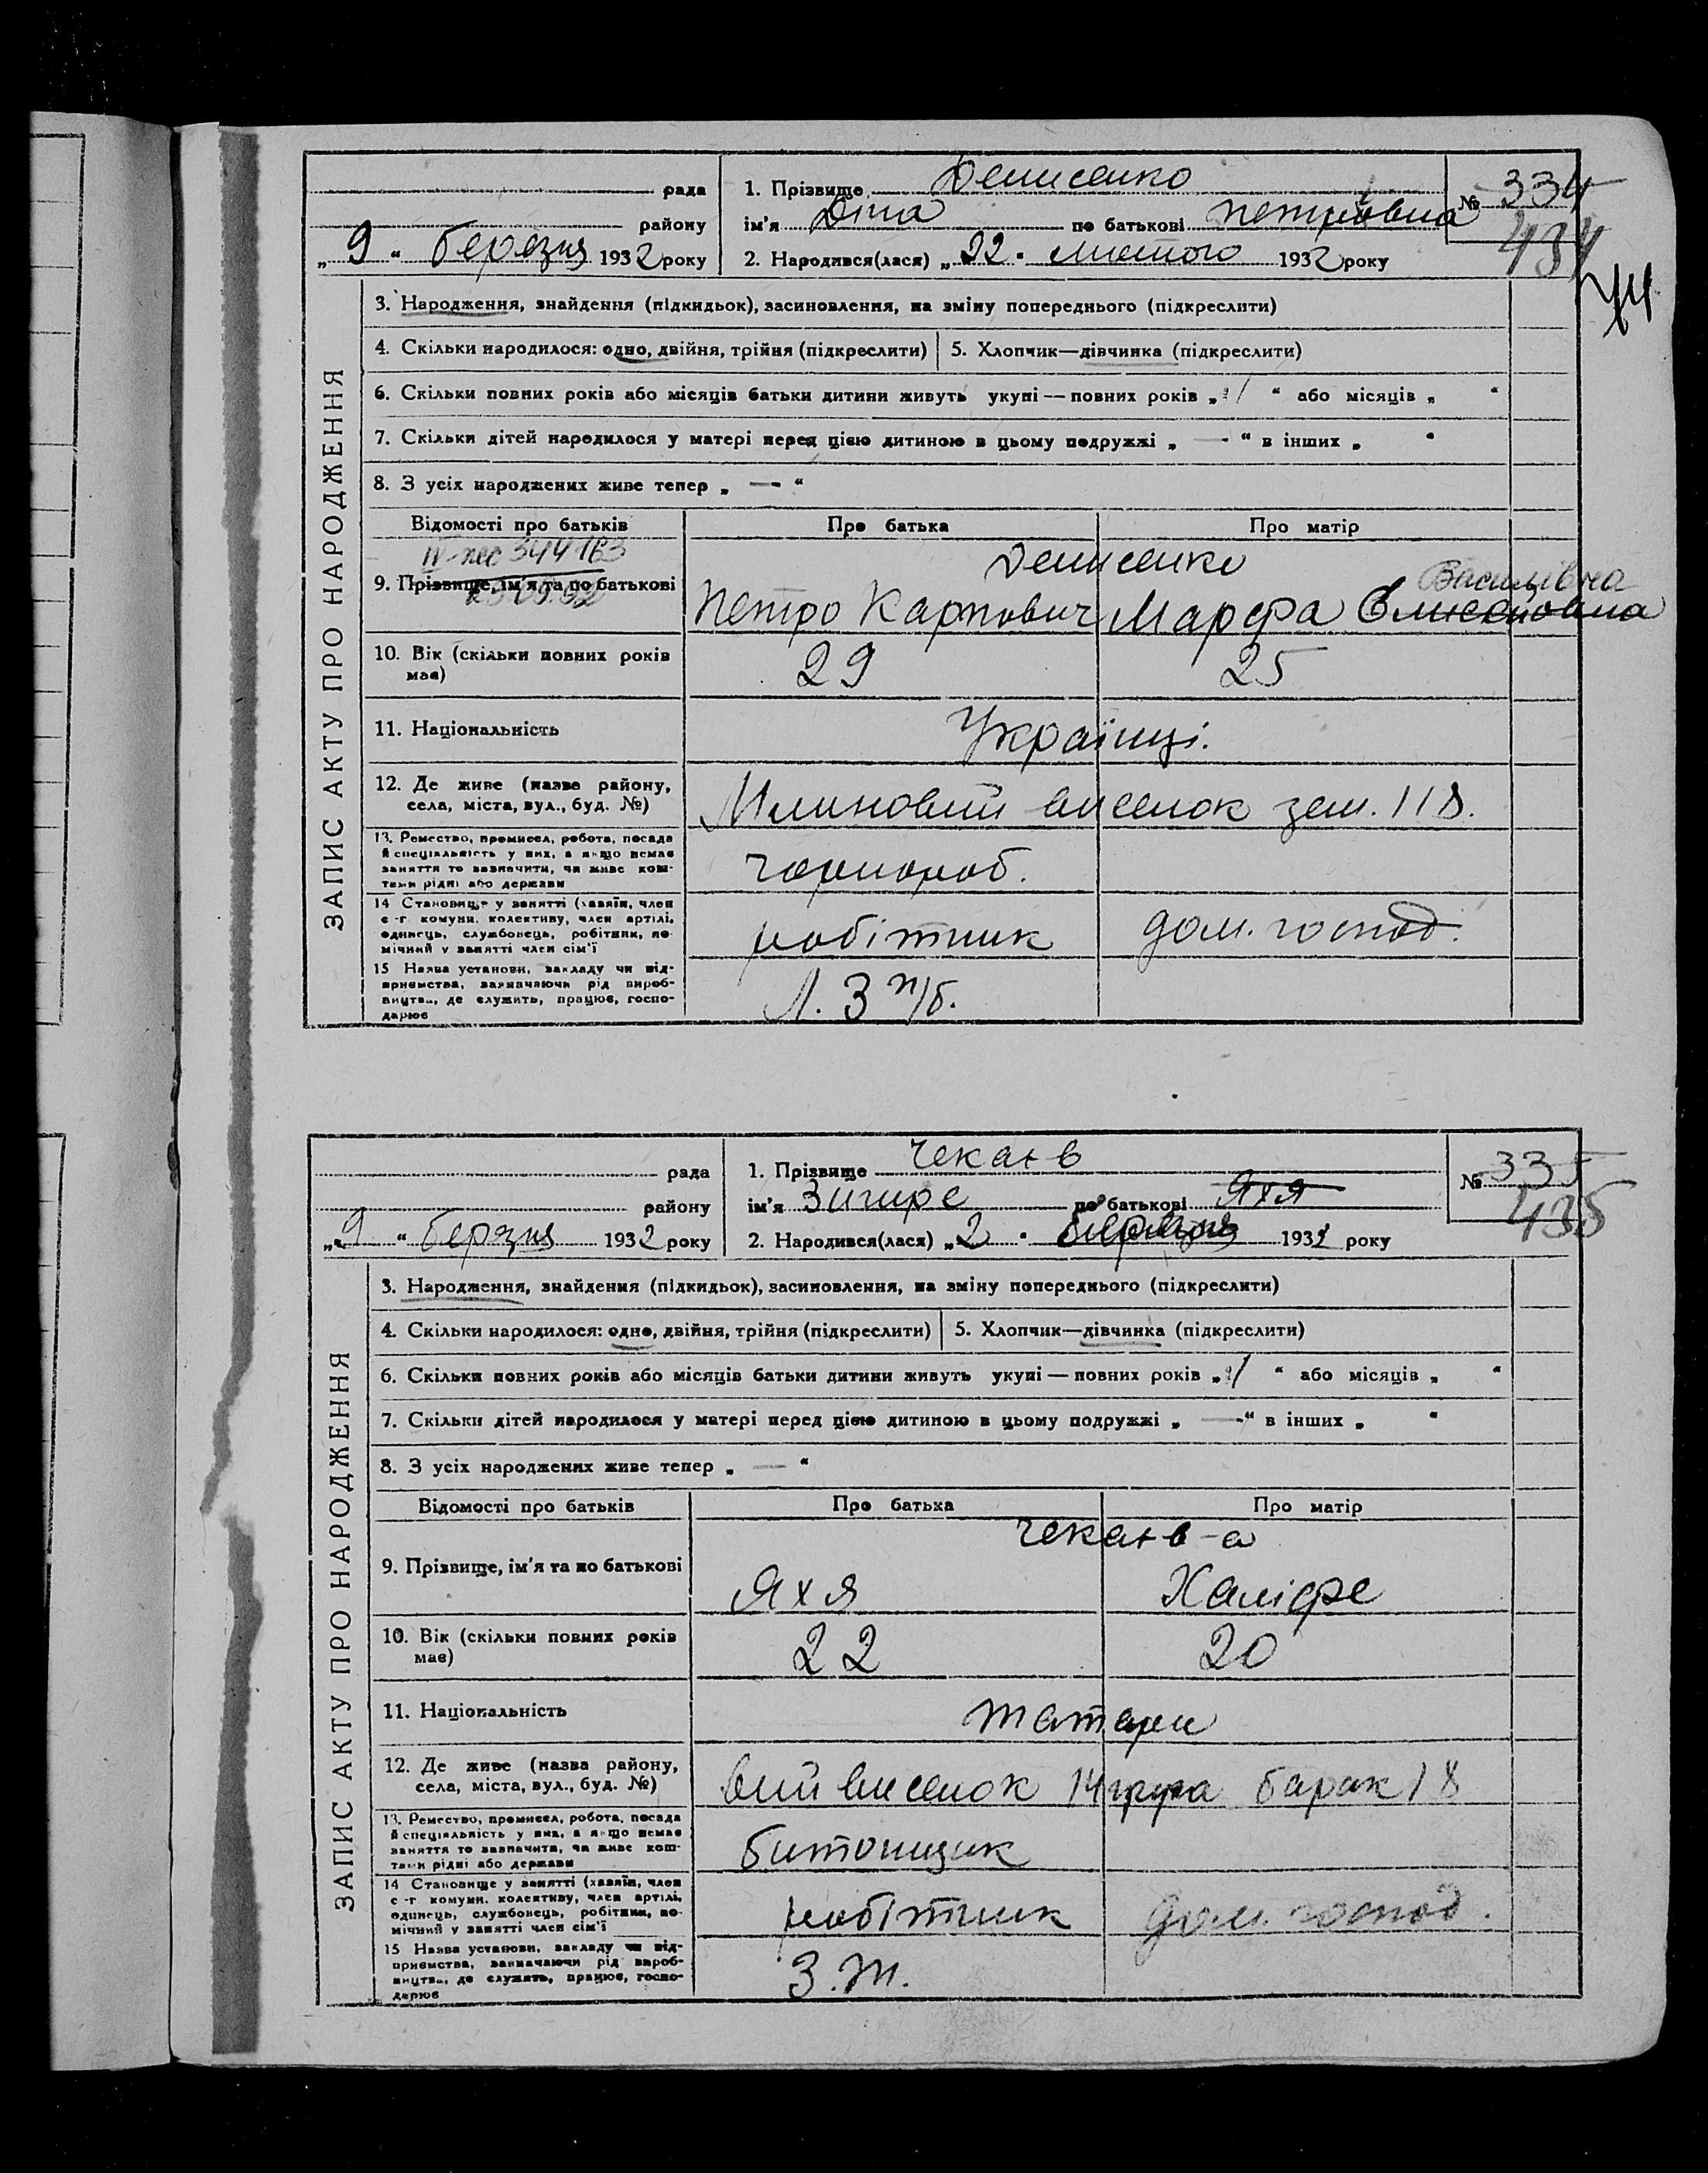 рада 1. Прізвище Денисенко № 334
району ім'я Діна по батькові Петрівна 434
„9“ березня 1932 року 2. Народився(лася) „22“ лютого 1932 року
ЗАПИС АКТУ ПРО НАРОДЖЕННЯ
3. Народження, знайдення (підкидьок), засиновлення, на зміну попереднього (підкреслити)
4. Скільки народилося: одно, двійня, трійня (підкреслити) 5. Хлопчик—дівчинка (підкреслити)
6. Скільки повних років або місяців батьки дитини живуть укупі — повних років „1“ або місяців „ “
7. Скільки дітей народилося у матері перед цією дитиною в цьому подружжі „—“ в інших „ “
8. З усіх народжених живе тепер „—“
Відомості про батьків Про батька Про матір
344163
Денисенко
Василівна
9. Прізвище, ім'я та по батькові Петро Карпович Марфа
10. Вік (скільки повних років має) 29 25
11. Національність Українці.
12. Де живе (назва району, села, міста, вул., буд. №) Млиновий виселок зем. 118.
13. Ремество, промисел, робота, посада й спеціяльність у них, а якщо немає заняття то зазначити, чи живе коштами рідні або держави чорнороб.
14 Становище у занятті (хазяїн, член с.-г. комуни, колективу, член артілі, одинець, службовець, робітник, помічний у занятті член сім'ї робітник дом. господ.
15 Назва установи, закладу чи підприємства, зазначаючи рід виробництва, де служить, працює, господарює Л. 3 п/б.
рада 1. Прізвище Чекаєв № 335
району ім'я Зигире по батькові Яхя 435
„9“ березня 1932 року 2. Народився(лася) „2“ березня 1932 року
ЗАПИС АКТУ ПРО НАРОДЖЕННЯ
3. Народження, знайдення (підкидьок), засиновлення, на зміну попереднього (підкреслити)
4. Скільки народилося: одно, двійня, трійня (підкреслити) 5. Хлопчик—дівчинка (підкреслити)
6. Скільки повних років або місяців батьки дитини живуть укупі — повних років „1“ або місяців „ “
7. Скільки дітей народилося у матері перед цією дитиною в цьому подружжі „—“ в інших „ “
8. З усіх народжених живе тепер „—“
Відомості про батьків Про батька Про матір
Чекаєв-а
9. Прізвище, ім'я та по батькові Яхя Халіфе
10. Вік (скільки повних років має) 22 20
11. Національність татари
12. Де живе (назва району, села, міста, вул., буд. №) виселок 14 група барак 18
13. Ремество, промисел, робота, посада й спеціяльність у них, а якщо немає заняття то зазначити, чи живе коштами рідні або держави битонщик
14 Становище у занятті (хазяїн, член с.-г. комуни, колективу, член артілі, одинець, службовець, робітник, помічний у занятті член сім'ї робітник дом. господ.
15 Назва установи, закладу чи підприємства, зазначаючи рід виробництва, де служить, працює, господарює З. Т.